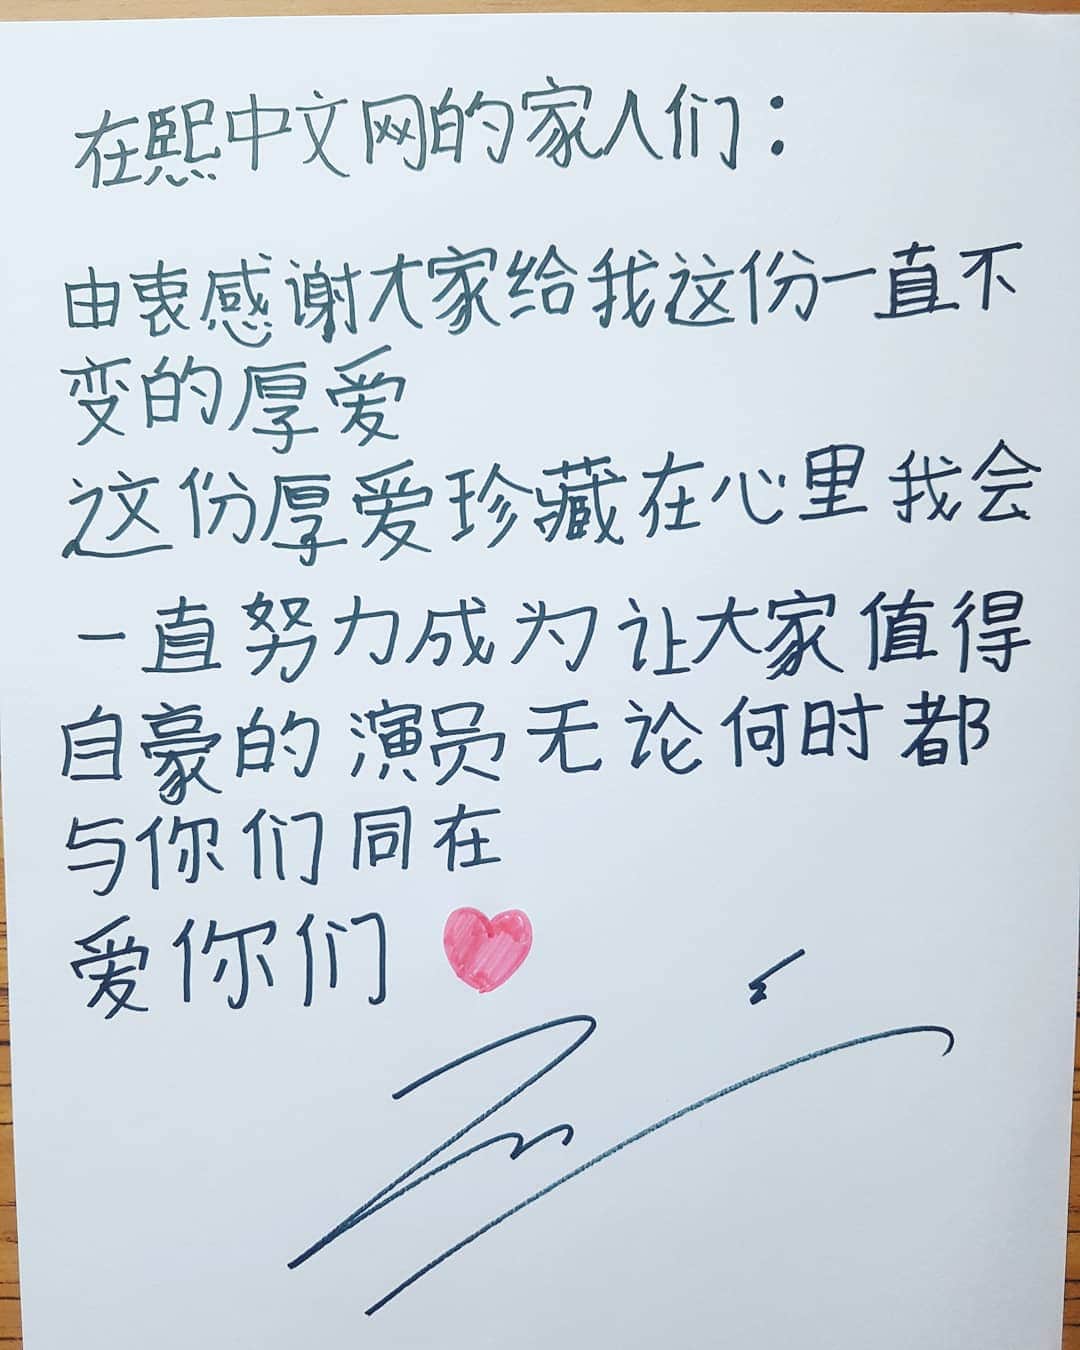 在熙中文网的家人们：
由衷感谢大家给我这份一直不
变的厚爱
这份厚爱珍藏在心里我会
一直努力成为让大家值得
自豪的演员无论何时都
与你们同在
爱你们